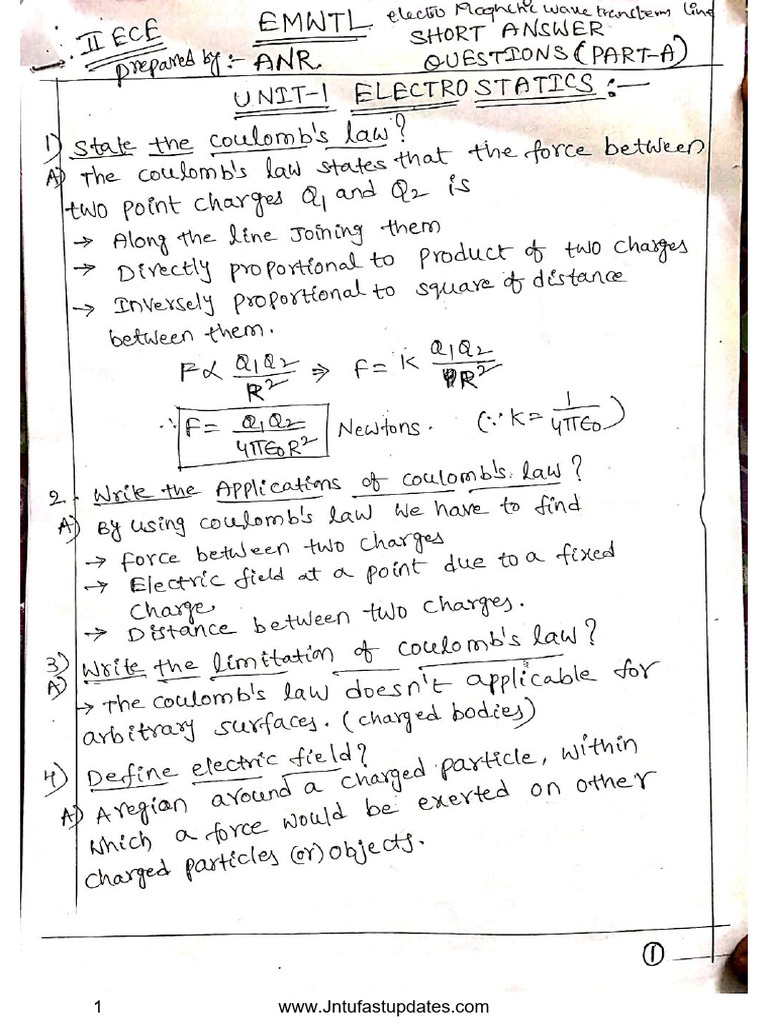 II ECE
prepared by :- ANR.
EMWTL
electro Magnetic wave transterm line
SHORT ANSWER
QUESTIONS (PART-A)
UNIT-1 ELECTROSTATICS :-
1) State the coulomb's law?
A) The coulomb's law states that the force between
two point charges Q1 and Q2 is
→ Along the line Joining them
→ Directly proportional to product of two charges
→ Inversely proportional to square of distance
between them.
F ∝ Q1Q2/R² ⇒ F = K Q1Q2/R²
∴ F = Q1Q2/4π∈0R² Newtons. (∵ K = 1/4π∈0)
2. Write the Applications of coulomb's law?
A) By using coulomb's law we have to find
→ force between two charges
→ Electric field at a point due to a fixed
charge.
→ Distance between two charges.
3) Write the limitation of coulomb's law?
A)
→ The coulomb's law doesn't applicable for
arbitrary surfaces. (charged bodies)
4) Define electric field?
A) A regian around a charged particle, within
which a force would be exerted on other
charged particles (or) objects.
1
1 www.Jntufastupdates.com